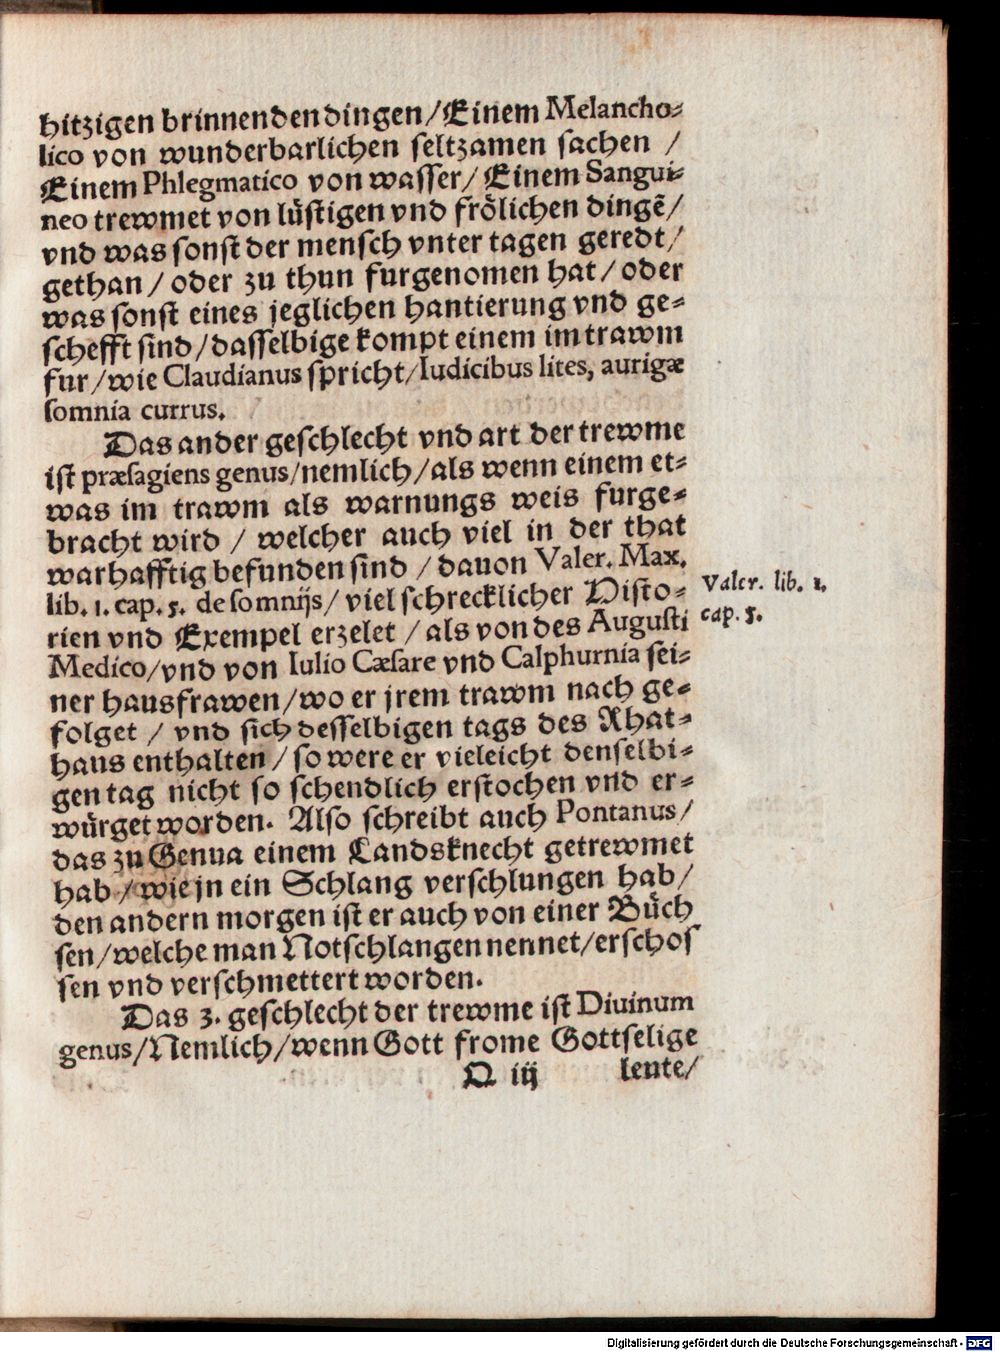 hitzigen brinnenden dingen / Einem Melancho-
lico von wunderbarlichen seltzamen sachen /
Einem Phlegmatico von wasser / Einem Sangui-
neo trewmet von lüstigen vnd frölichen dingẽ /
vnd was sonst der mensch vnter tagen geredt /
gethan / oder zu thun furgenomen hat / oder
was sonst eines jeglichen hantierung vnd ge-
schefft sind / dasselbige kompt einem im trawm
fur / wie Claudianus spricht / Iudicibus lites, aurigæ
somnia currus.
Das ander geschlecht vnd art der trewme
ist præsagiens genus / nemlich / als wenn einem et-
was im trawm als warnungs weis furge-
bracht wird / welcher auch viel in der that
warhafftig befunden sind / dauon Valer. Max.
lib. 1. cap. 5. de somnijs / viel schrecklicher Histo-
rien vnd Exempel erzelet / als von des Augusti
Medico / vnd von Iulio Cæsare vnd Calphurnia sei-
ner hausfrawen / wo er jrem trawm nach ge-
folget / vnd sich desselbigen tags des Rhat-
haus enthalten / so were er vieleicht denselbi-
gen tag nicht so schendlich erstochen vnd er-
würget worden. Also schreibt auch Pontanus /
das zu Genua einem Landsknecht getrewmet
hab / wie jn ein Schlang verschlungen hab /
den andern morgen ist er auch von einer Büch
sen / welche man Notschlangen nennet / erschos
sen vnd verschmettert worden.
Das 3. geschlecht der trewme ist Diuinum
genus / Nemlich / wenn Gott frome Gottselige
O iij leute /
Valer. lib. 1.
cap. 5.
Digitalisierung gefördert durch die Deutsche Forschungsgemeinschaft - DFG